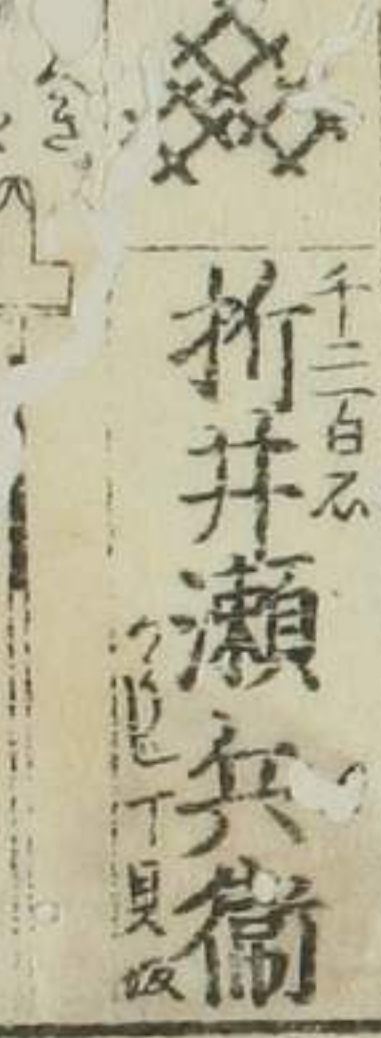 千二百石
折井瀬兵衛
丁貝坂